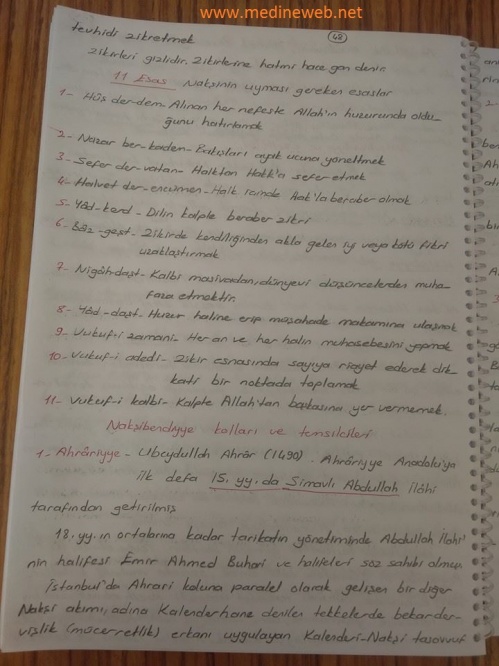 www.medineweb.net
48
tevhidi zikretmek
zikirleri gizlidir. Zikirlerine hatmi hacegan denir.
11 Esas Nakşinin uyması gereken esaslar
1- Hûş der-dem- Alınan her nefeste Allah'ın huzurunda oldu-
ğunu hatırlamak
2- Nazar ber-kadem- Bakışları ayak ucuna yöneltmek
3- Sefer der-vatan- Halktan Hakk'a sefer etmek
4- Halvet der-encümen- Halk içinde Hak'la beraber olmak
5- Yâd-kerd- Dilin kalple beraber zikri
6- Bâz-geşt- Zikirde kendiliğinden akla gelen iyi veya kötü fikri
uzaklaştırmak
7- Nigâh-daşt- Kalbi masivadan, dünyevi düşüncelerden muha-
faza etmektir.
8- Yâd-daşt- Huzur haline erip müşahade makamına ulaşmak
9- Vukuf-i zamani- Her an ve her halin muhasebesini yapmak
10- Vukuf-i adedi- Zikir esnasında sayıya riayet ederek dik-
kati bir noktada toplamak
11- Vukuf-i kalbi- Kalpte Allah'tan başkasına yer vermemek.
Nakşibendiyye kolları ve temsilcileri
1- Ahrâriyye- Ubeydullah Ahrâr (1490). Ahrâriyye Anadolu'ya
ilk defa 15. yy. da Simavlı Abdullah İlâhi
tarafından getirilmiş
18. yy. ın ortalarına kadar tarikatın yönetiminde Abdullah İlahi'
nin halifesi Emir Ahmed Buhari ve halifeleri söz sahibi olmuş.
İstanbul'da Ahrari koluna paralel olarak gelişen bir diğer
Nakşi akımı, adına Kalenderhane denilen tekkelerde bekar der-
vişlik (mücerretlik) erkanı uygulayan Kalenderi-Nakşi tasavvuf